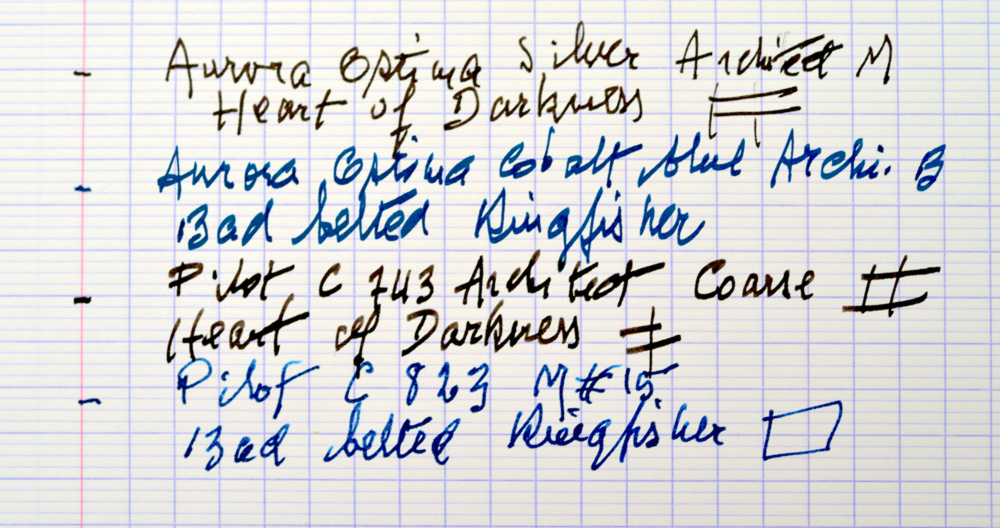 - Aurora Optima Silver Architect M
Heart of Darkness
- Aurora Optima Cobalt blue Archi. B
Bad belted Kingfisher
- Pilot C 743 Architect Coarse
Heart of Darkness
- Pilot C 823 M #15
Bad belted Kingfisher